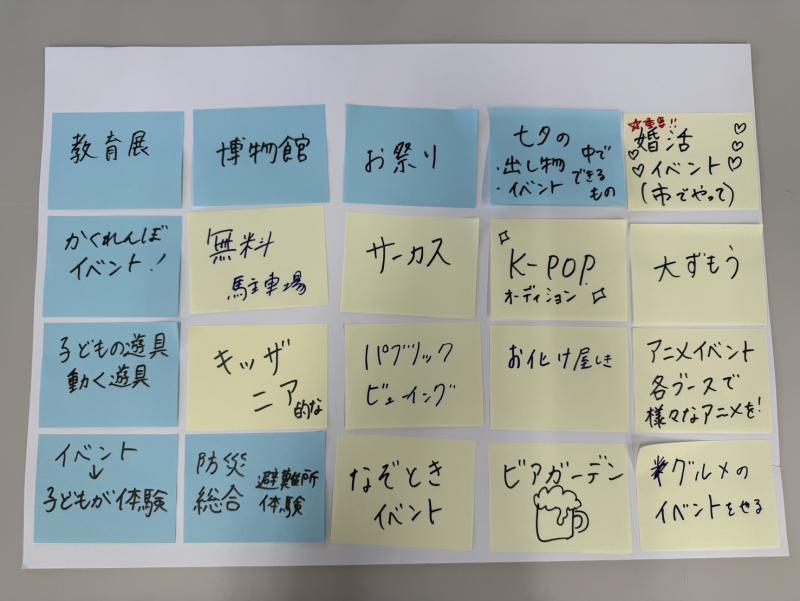 教育展
博物館
お祭り
七夕の
・出し物
・イベント
中で
できる
もの
婚活
イベント
(市でやって)
かくれんぼ
イベント!
無料
駐車場
サーカス
K-POP
オーディション
大ずもう
子どもの遊具
動く遊具
キッザ
ニア的な
パブリック
ビューイング
お化け屋しき
アニメイベント
各ブースで
様々なアニメを!
イベント
↓
子どもが体験
防災
総合
避難所
体験
なぞとき
イベント
ビアガーデン
グルメの
イベントをやる